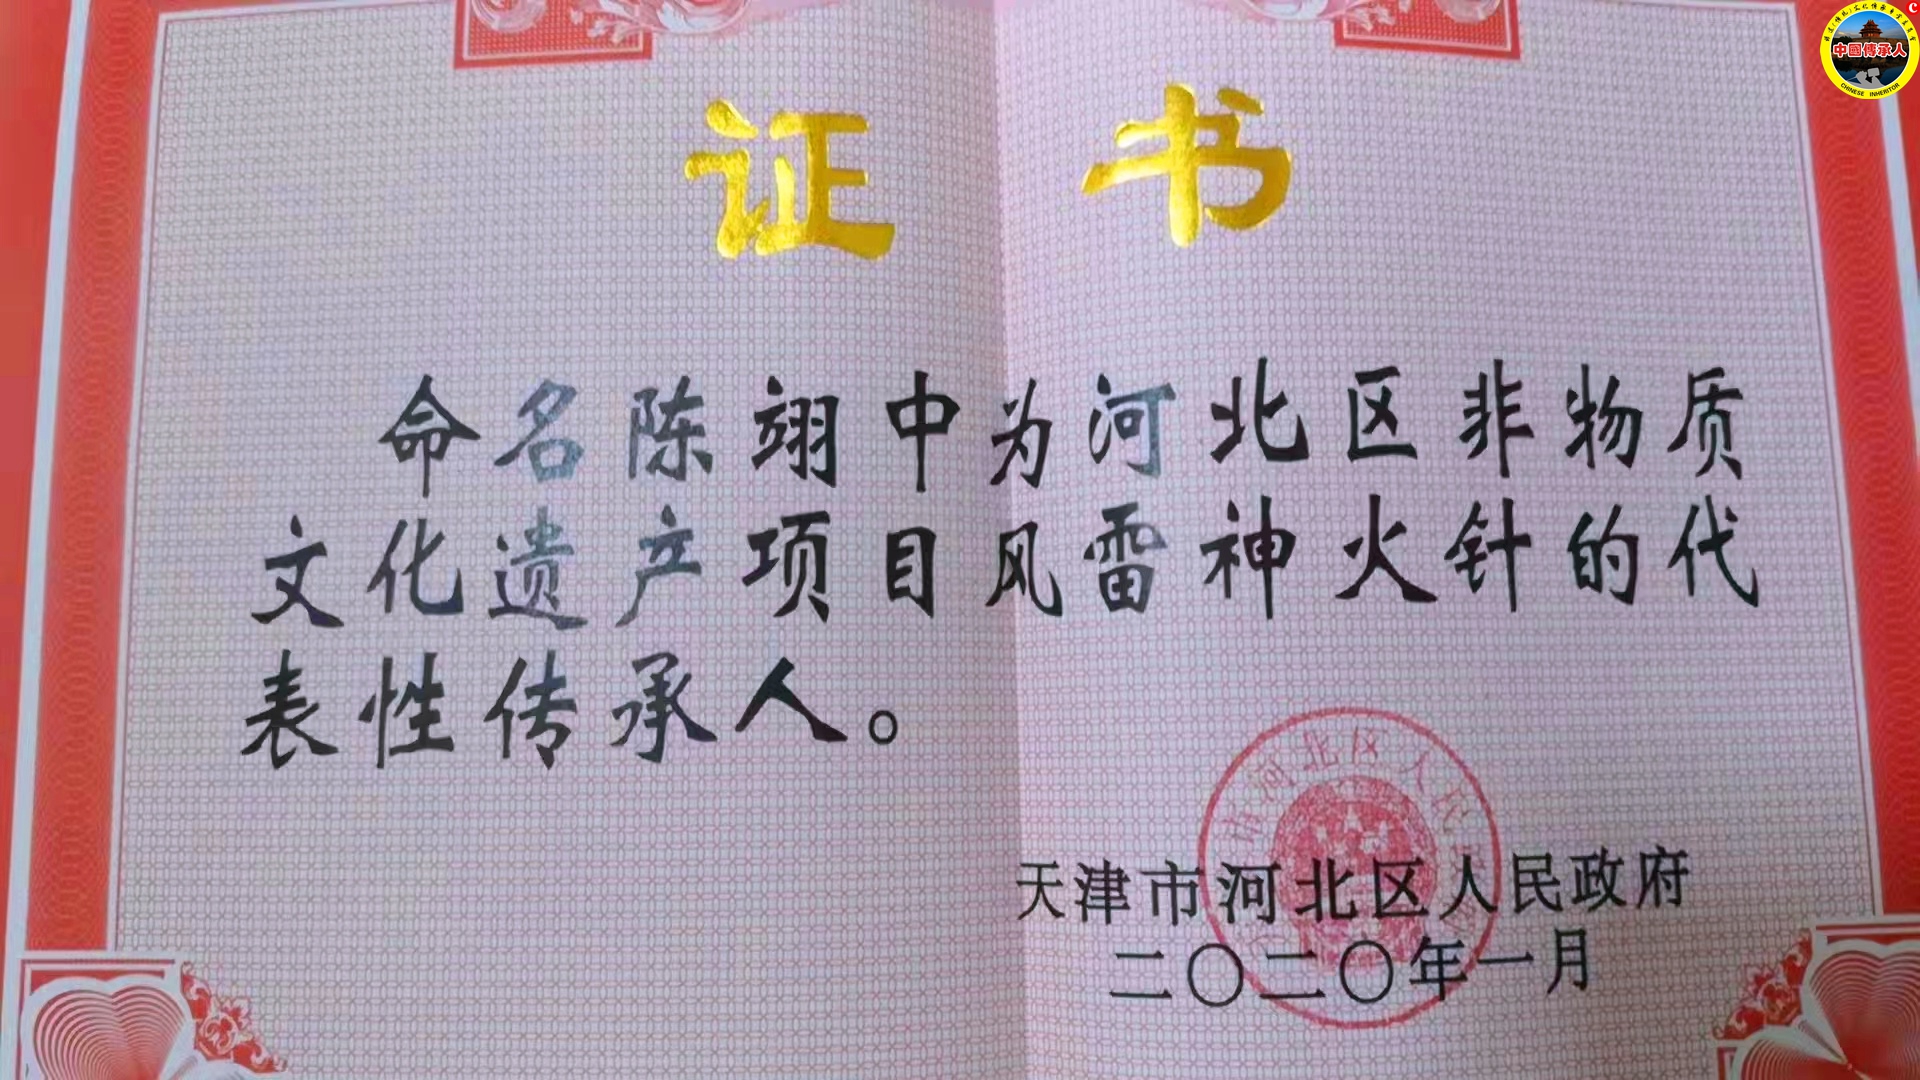 中國傳承人
CHINESE INHERITOR
证书
命名陈翊中为河北区非物质
文化遗产项目风雷神火针的代
表性传承人。
市河北区人民
天津市河北区人民政府
二〇二〇年一月